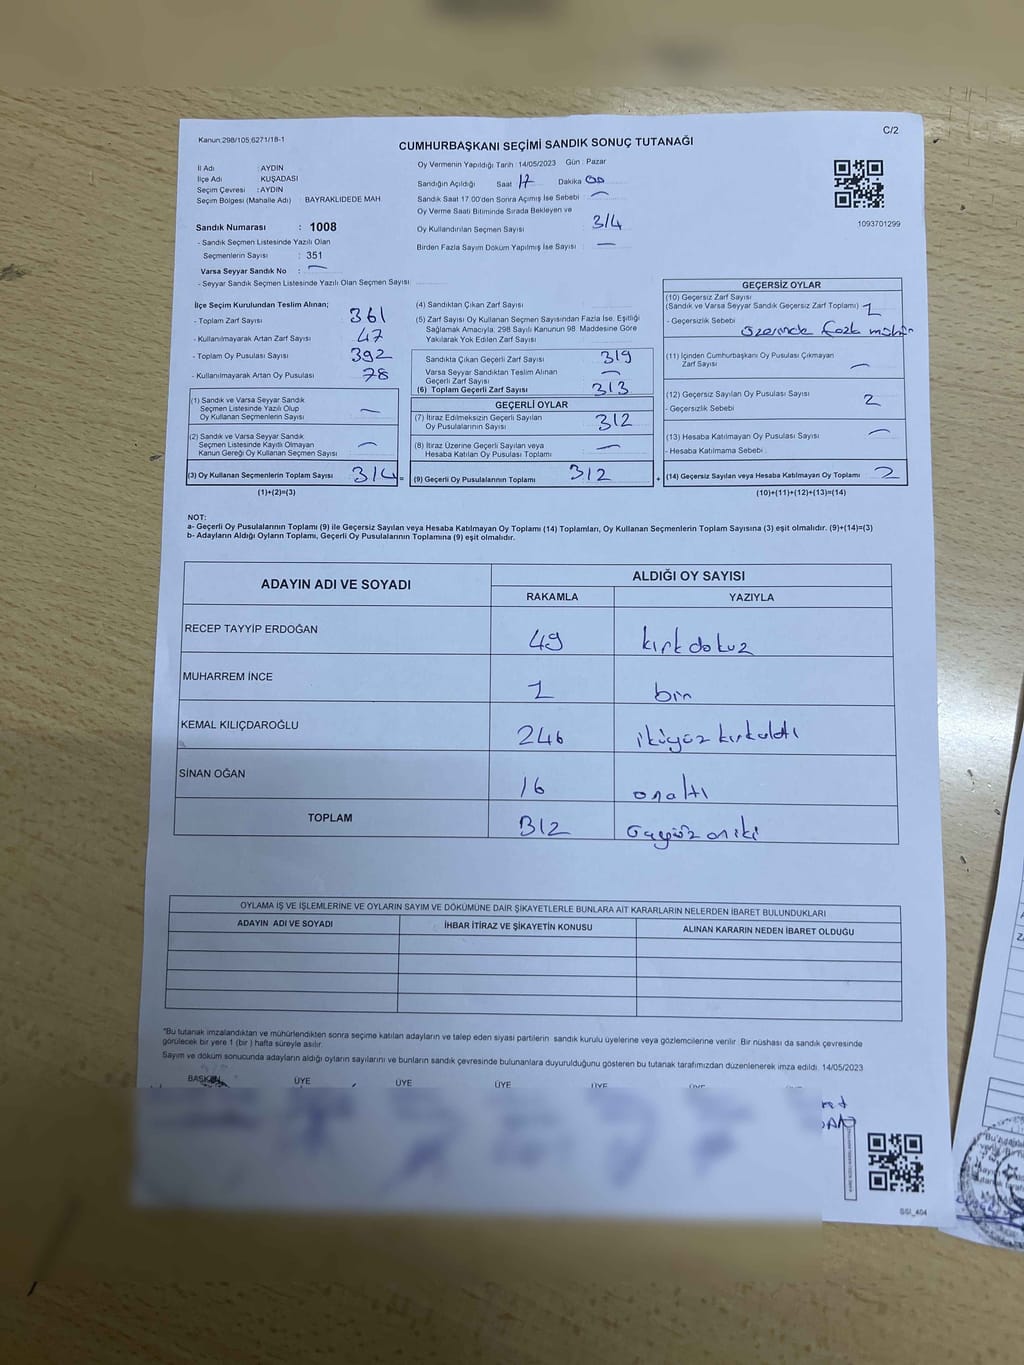 Kanun:298/105;6271/18-1
C/2
CUMHURBAŞKANI SEÇİMİ SANDIK SONUÇ TUTANAĞI
İl Adı : AYDIN
İlçe Adı KUŞADASI
Seçim Çevresi : AYDIN
Seçim Bölgesi (Mahalle Adı) : BAYRAKLIDEDE MAH
Sandık Numarası : 1008
- Sandık Seçmen Listesinde Yazılı Olan
Seçmenlerin Sayısı : 351
Varsa Seyyar Sandık No : —
- Seyyar Sandık Seçmen Listesinde Yazılı Olan Seçmen Sayısı:
Oy Vermenin Yapıldığı Tarih : 14/05/2023 Gün : Pazar
Sandığın Açıldığı Saat 17 Dakika 00
Sandık Saat 17.00'den Sonra Açımış İse Sebebi —
Oy Verme Saati Bitiminde Sırada Bekleyen ve
Oy Kullandırılan Seçmen Sayısı 314
Birden Fazla Sayım Döküm Yapılmış İse Sayısı —
1093701299
İlçe Seçim Kurulundan Teslim Alınan;
- Toplam Zarf Sayısı 361
- Kullanılmayarak Artan Zarf Sayısı 47
- Toplam Oy Pusulası Sayısı 392
- Kullanılmayarak Artan Oy Pusulası 78
(1) Sandık ve Varsa Seyyar Sandık
Seçmen Listesinde Yazılı Olup
Oy Kullanan Seçmenlerin Sayısı —
(2) Sandık ve Varsa Seyyar Sandık
Seçmen Listesinde Kayıtlı Olmayan
Kanun Gereği Oy Kullanan Seçmen Sayısı —
(3) Oy Kullanan Seçmenlerin Toplam Sayısı 314 =
(1)+(2)=(3)
(4) Sandıktan Çıkan Zarf Sayısı
(5) Zarf Sayısı Oy Kullanan Seçmen Sayısından Fazla İse, Eşitliği
Sağlamak Amacıyla; 298 Sayılı Kanunun 98. Maddesine Göre
Yakılarak Yok Edilen Zarf Sayısı
Sandıkta Çıkan Geçerli Zarf Sayısı 319
Varsa Seyyar Sandıktan Teslim Alınan
Geçerli Zarf Sayısı —
(6) Toplam Geçerli Zarf Sayısı 313
GEÇERLİ OYLAR
(7) İtiraz Edilmeksizin Geçerli Sayılan
Oy Pusulalarının Sayısı 312
(8) İtiraz Üzerine Geçerli Sayılan veya
Hesaba Katılan Oy Pusulası Toplamı —
(9) Geçerli Oy Pusulalarının Toplamı 312 +
GEÇERSİZ OYLAR
(10) Geçersiz Zarf Sayısı
(Sandık ve Varsa Seyyar Sandık Geçersiz Zarf Toplamı) 1
- Geçersizlik Sebebi
üzerinde fazla mühür
(11) İçinden Cumhurbaşkanı Oy Pusulası Çıkmayan
Zarf Sayısı —
(12) Geçersiz Sayılan Oy Pusulası Sayısı 2
- Geçersizlik Sebebi
(13) Hesaba Katılmayan Oy Pusulası Sayısı —
- Hesaba Katılmama Sebebi
(14) Geçersiz Sayılan veya Hesaba Katılmayan Oy Toplamı 2
(10)+(11)+(12)+(13)=(14)
NOT:
a- Geçerli Oy Pusulalarının Toplamı (9) ile Geçersiz Sayılan veya Hesaba Katılmayan Oy Toplamı (14) Toplamları, Oy Kullanan Seçmenlerin Toplam Sayısına (3) eşit olmalıdır. (9)+(14)=(3)
b- Adayların Aldığı Oyların Toplamı, Geçerli Oy Pusulalarının Toplamına (9) eşit olmalıdır.
ADAYIN ADI VE SOYADI
ALDIĞI OY SAYISI
RAKAMLA YAZIYLA
RECEP TAYYİP ERDOĞAN 49 kırkdokuz
MUHARREM İNCE 1 bir
KEMAL KILIÇDAROĞLU 246 ikiyüzkırkaltı
SİNAN OĞAN 16 onaltı
TOPLAM 312 üçyüzoniki
OYLAMA İŞ VE İŞLEMLERİNE VE OYLARIN SAYIM VE DÖKÜMÜNE DAİR ŞİKAYETLERLE BUNLARA AİT KARARLARIN NELERDEN İBARET BULUNDUKLARI
ADAYIN ADI VE SOYADI İHBAR İTİRAZ VE ŞİKAYETİN KONUSU ALINAN KARARIN NEDEN İBARET OLDUĞU
"Bu tutanak imzalandıktan ve mühürlendikten sonra seçime katılan adayların ve talep eden siyasi partilerin sandık kurulu üyelerine veya gözlemcilerine verilir. Bir nüshası da sandık çevresinde
görülecek bir yere 1 (bir ) hafta süreyle asılır.
Sayım ve döküm sonucunda adayların aldığı oyların sayılarını ve bunların sandık çevresinde bulunanlara duyurulduğunu gösteren bu tutanak tarafımızdan düzenlenerek imza edildi. 14/05/2023
BAŞKAN ÜYE ÜYE ÜYE ÜYE ÜYE
SSİ_404